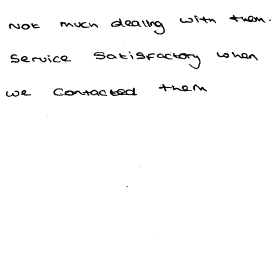 Not much dealing with them.
Service Satisfactory when
we contacted them